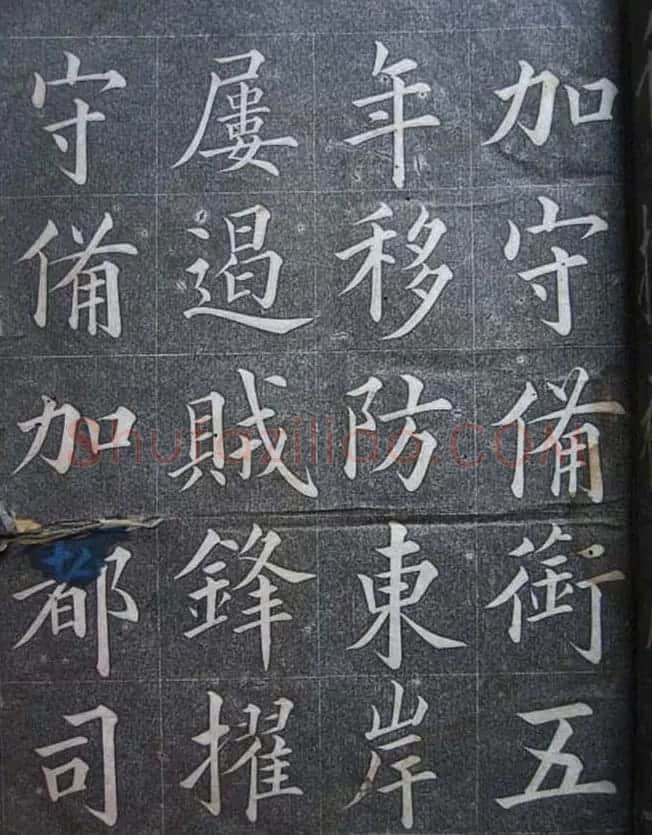 加守備銜五
年移防東岸
屢遏賊鋒擢
守備加都司
shufaziliao.com